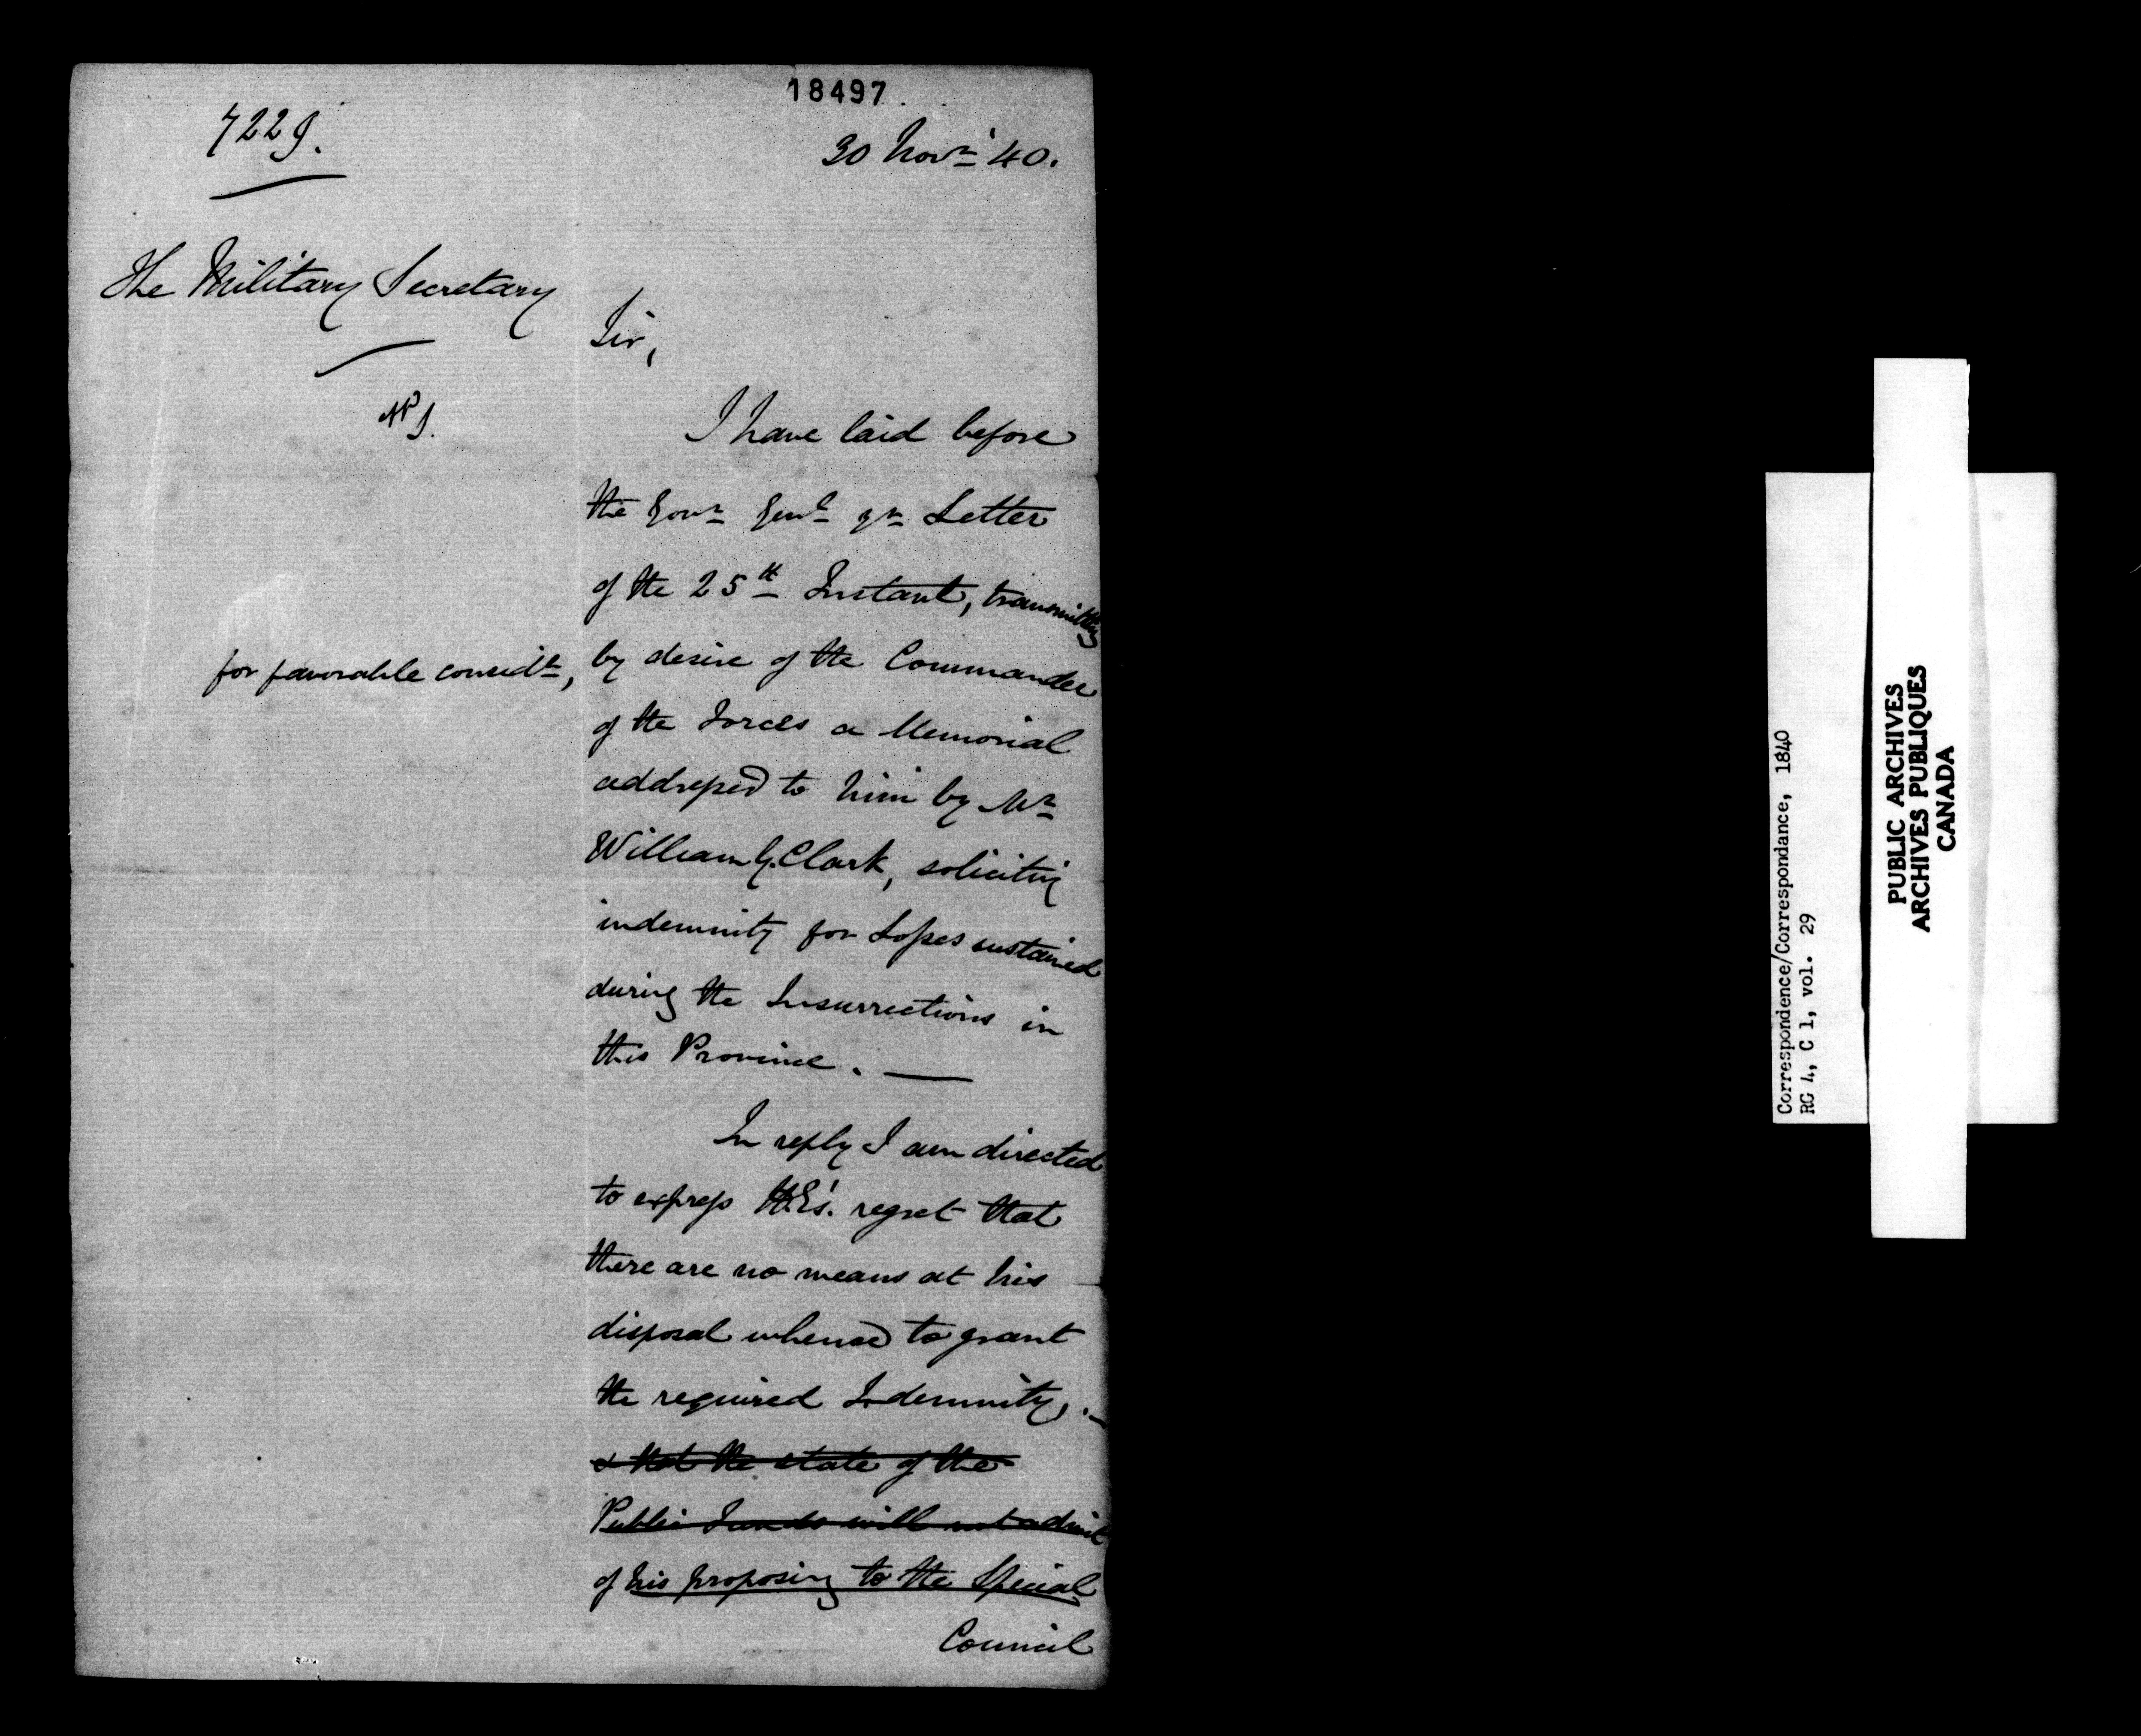 18497.
7229.
30 Novr '40.
The Military Secretary
Sir,
I have laid before
the Govr Genl yr Letter
of the 25th Instant, transmitting
for favorable considn,
by desire of the Commander
of the Forces a Memorial
addressed to him by Mr
William G. Clark, soliciting
indemnity for Losses sustained
during the Insurrections in
this Province. —
In reply I am directed
to express H.E's. regret that
there are no means at his
disposal whence to grant
the required Indemnity. —
& that the state of the
Public Funds will not admit
of his proposing to the Special
Council
Correspondence/Correspondance, 1840
RG 4, C 1, vol. 29
PUBLIC ARCHIVES
ARCHIVES PUBLIQUES
CANADA